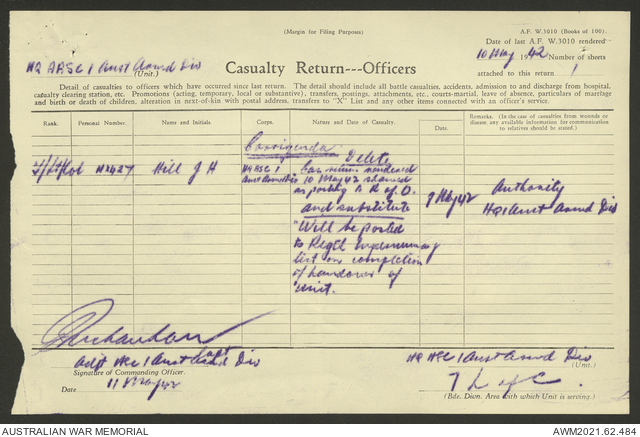 (Margin for Filing Purposes)
A.F. W.3010 (Books of 100).
Date of last A.F. W.3010 rendered
10 May 1942 Number of sheets
attached to this return 1
HQ AASC 1 Aust Armd Div
(Unit.)
Casualty Return---Officers
Detail of casualties to officers which have occurred since last return. The detail should include all battle casualties, accidents, admission to and discharge from hospital,
casualty clearing station, etc. Promotions (acting, temporary, local or substantive), transfers, postings, attachments, etc., courts-martial, leave of absence, particulars of marriage
and birth or death of children, alteration in next-of-kin with postal address, transfers to "X" List and any other items connected with an officer's service.
Rank.
Personal Number.
Name and Initials.
Corps.
Nature and Date of Casualty.
Date.
Remarks. (In the case of casualties from wounds or
disease any available information for communication
to relatives should be stated.)
Corrigenda
Delete
Hill J H
rendered
10 May 42
as posting to R of O.
and substitute
"Will be posted
to Regtl Supernumary
list on completion
of handover of
Unit.
9 May 42
Authority
HQ 1 Aust Armd Div
Richardson
Capt
Adjt HQ 1 Aust Armd Div
Signature of Commanding Officer.
Date 11 May 42
1 Aust Armd Div
(Unit.)
7 L of C.
(Bde. Divn. Area with which Unit is serving.)
AUSTRALIAN WAR MEMORIAL
AWM2021.62.484